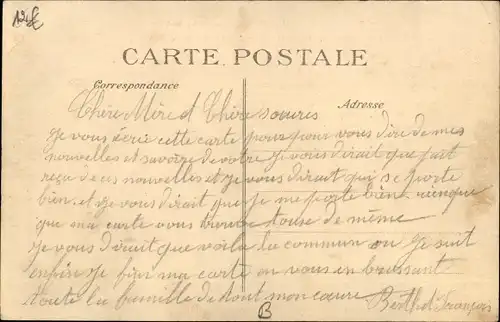 12€
CARTE POSTALE
Correspondance
Adresse
Chère Mère et Chère soeures
Je vous écrie cette carte pour vous dire de mes
nouvelles et savoire de votre je vous dirait que jait
reçu de ces nouvelles et je vous dirait qui se porte
bien et je vous dirait que je me porte bien
que ma carte vous trouve touse de même
je vous dirait que voila la commun ou je suit
enfin je fini ma carte en vous en brassant
toute la famille de tout mon coeure Berthet François
B